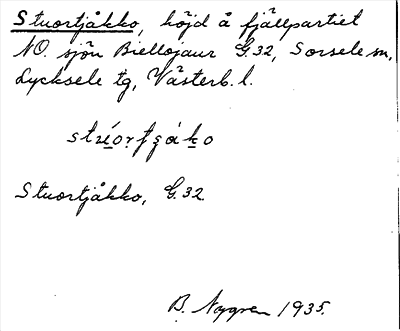 Stuortjåkko, höjd å fjällpartiet
NO. sjön Biellojaur G.32, Sorsele sn,
Lycksele tg, Västerb. l.
Stuortjåkko, G.32.
B. Nygren 1935.